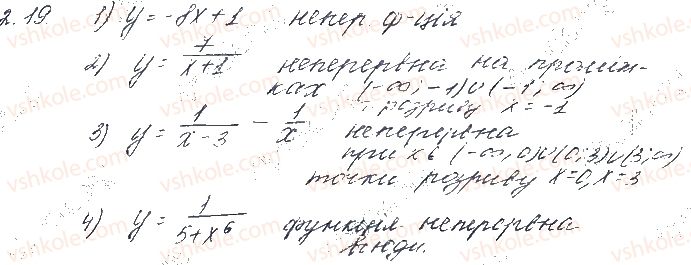 2.19. 1) y = -8x + 1 непер. ф-ція
2) y = 7/(x+1) неперервна на проміж-
ках (-∞; -1)∪(-1; ∞)
розриву x = -1
3) y = 1/(x-3) - 1/x неперервна
при x є (-∞, 0)∪(0; 3)∪(3; ∞)
точки розриву x=0, x=3
4) y = 1/(5+x⁶) функція неперервна
всюди.